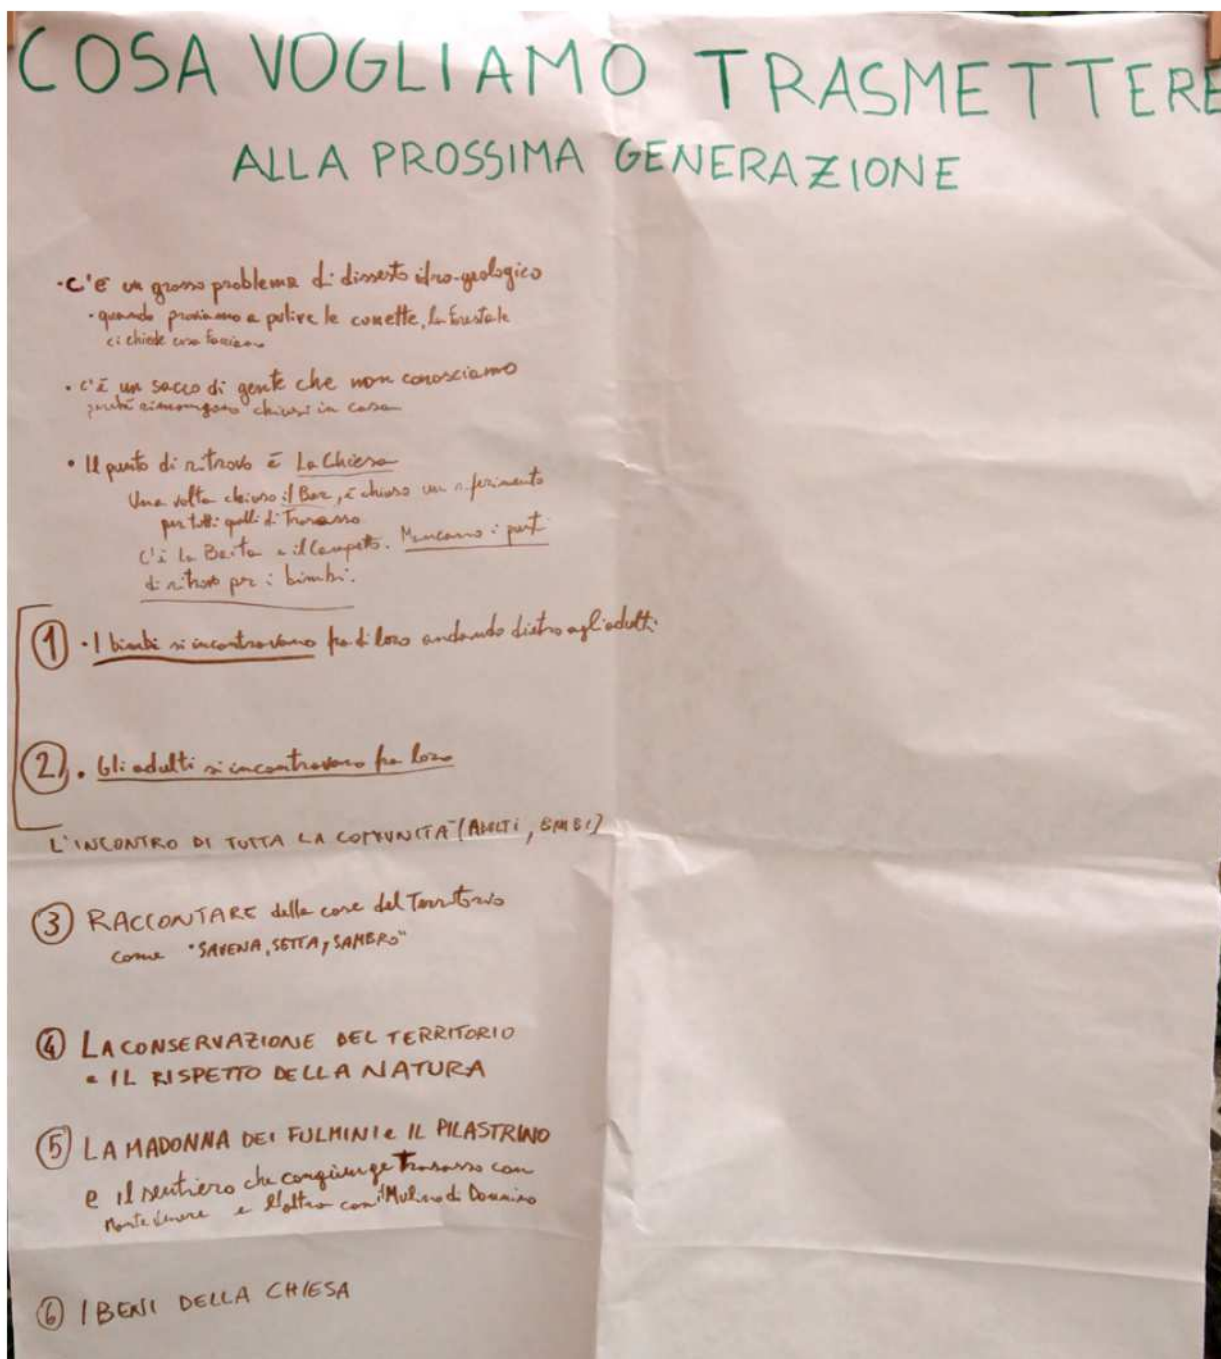 COSA VOGLIAMO TRASMETTERE
ALLA PROSSIMA GENERAZIONE
• C'È un grosso problema di dissesto idro-geologico
• quando proviamo a pulire le cunette, la forestale
ci chiede cosa facciamo
• C'è un sacco di gente che non conosciamo
perché rimangono chiusi in casa
• Il punto di ritrovo è La Chiesa
Una volta chiuso il Bar, è chiuso un riferimento
per tutti quelli di Trasasso
C'è la Baita e il Campetto. Mancano i punti
di ritrovo per i bimbi.
① • I bimbi si incontravano fra di loro andando dietro agli adulti
② • Gli adulti si incontravano fra loro
L'INCONTRO DI TUTTA LA COMUNITA' (ADULTI, BIMBI)
③ RACCONTARE delle cose del Territorio
come "SAVENA, SETTA, SAMBRO"
④ LA CONSERVAZIONE DEL TERRITORIO
• IL RISPETTO DELLA NATURA
⑤ LA MADONNA DEI FULMINI e IL PILASTRINO
e il sentiero che congiunge Trasasso con
Monte Venere e l'altro con il Mulino di
⑥ I BENI DELLA CHIESA